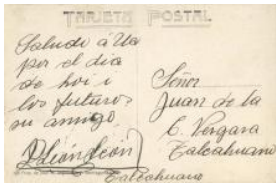 TARJETA POSTAL
Saludo á Ud
por el dia
de hoi i
los futuros
su amigo
Talcahuano
Señor
Juan de la
C. Vergara
Talcahuano